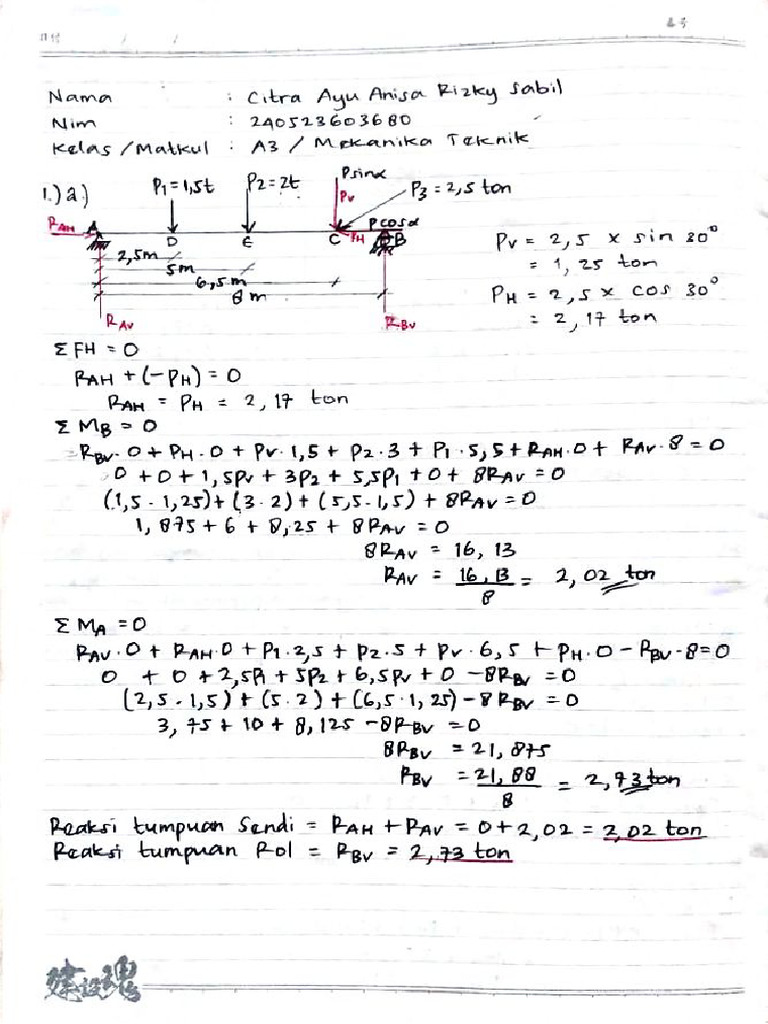 Nama : Citra Ayu Anisa Rizky Sabil
Nim : 240523603680
Kelas /Matkul : A3 / Mekanika Teknik
1.) a)
P1 = 1,5t
P2 = 2t
P sin α
Pv
P3 = 2,5 ton
P cos α
PH
RAH
A
D
E
C
B
2,5m
5m
6,5 m
8 m
RAV
RBV
Pv = 2,5 x sin 30°
= 1,25 ton
PH = 2,5 x cos 30°
= 2,17 ton
Σ FH = 0
RAH + (-PH) = 0
RAH = PH = 2,17 ton
Σ MB = 0
-RBV·0 + PH·0 + Pv·1,5 + P2·3 + P1·5,5 + RAH·0 + RAV·8 = 0
0 + 0 + 1,5Pv + 3P2 + 5,5P1 + 0 + 8RAV = 0
(1,5 · 1,25) + (3 · 2) + (5,5 · 1,5) + 8RAV = 0
1,875 + 6 + 8,25 + 8RAV = 0
8RAV = 16,13
RAV = 16,13 / 8 = 2,02 ton
Σ MA = 0
RAV·0 + RAH·0 + P1·2,5 + P2·5 + Pv·6,5 + PH·0 - RBV·8 = 0
0 + 0 + 2,5P1 + 5P2 + 6,5Pv + 0 - 8RBV = 0
(2,5 · 1,5) + (5 · 2) + (6,5 · 1,25) - 8RBV = 0
3,75 + 10 + 8,125 - 8RBV = 0
8RBV = 21,875
RBV = 21,88 / 8 = 2,73 ton
Reaksi tumpuan Sendi = RAH + RAV = 0 + 2,02 = 2,02 ton
Reaksi tumpuan Rol = RBV = 2,73 ton